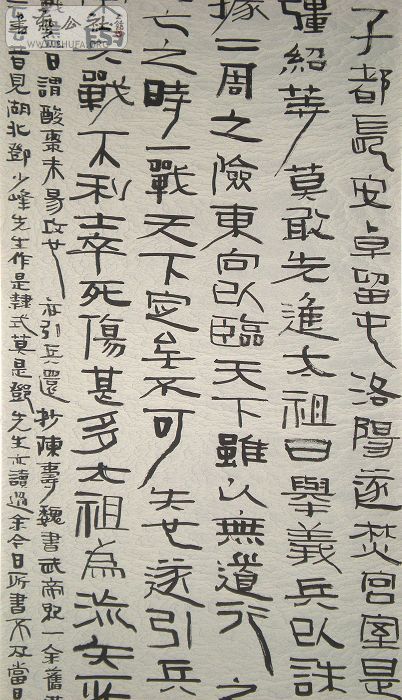 子都長安卓留屯洛陽遂焚宮室是
彊紹等莫敢先進太祖曰舉義兵以誅
據二周之險東向以臨天下雖以無道行之
亡之時一戰天下定矣不可失也遂引兵
戰不利士卒死傷甚多太祖為流矢所
日謂酸棗未易攻也亦引兵還抄陳壽魏書武帝紀一余舊
昔見湖北鄧少峰先生作是式莫是鄧先生亦讀過余今日所書不及當日